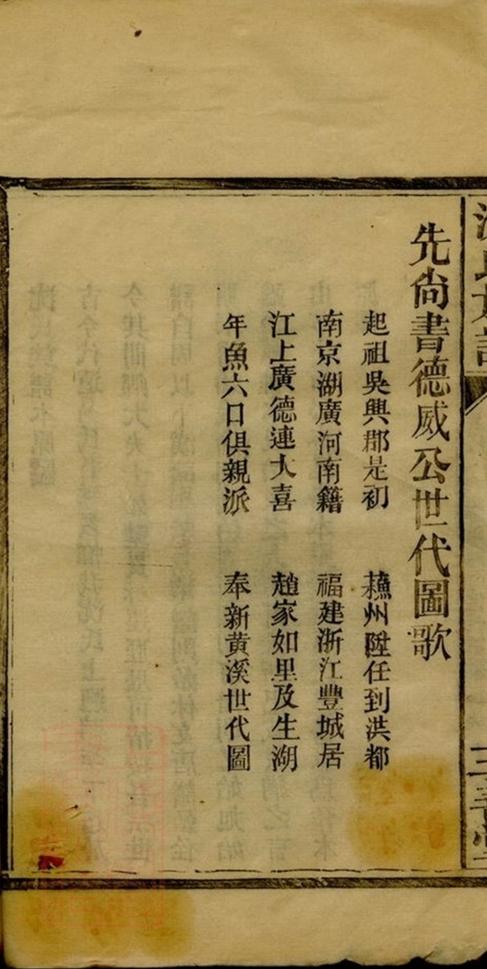 先尚書德威公世代圖歌
起祖吳興郡是初 蘓州陞任到洪都
南京湖廣河南籍 福建浙江豐城居
江上廣德連大喜 趙家如里及生湖
年魚六口俱親派 奉新黄溪世代圖